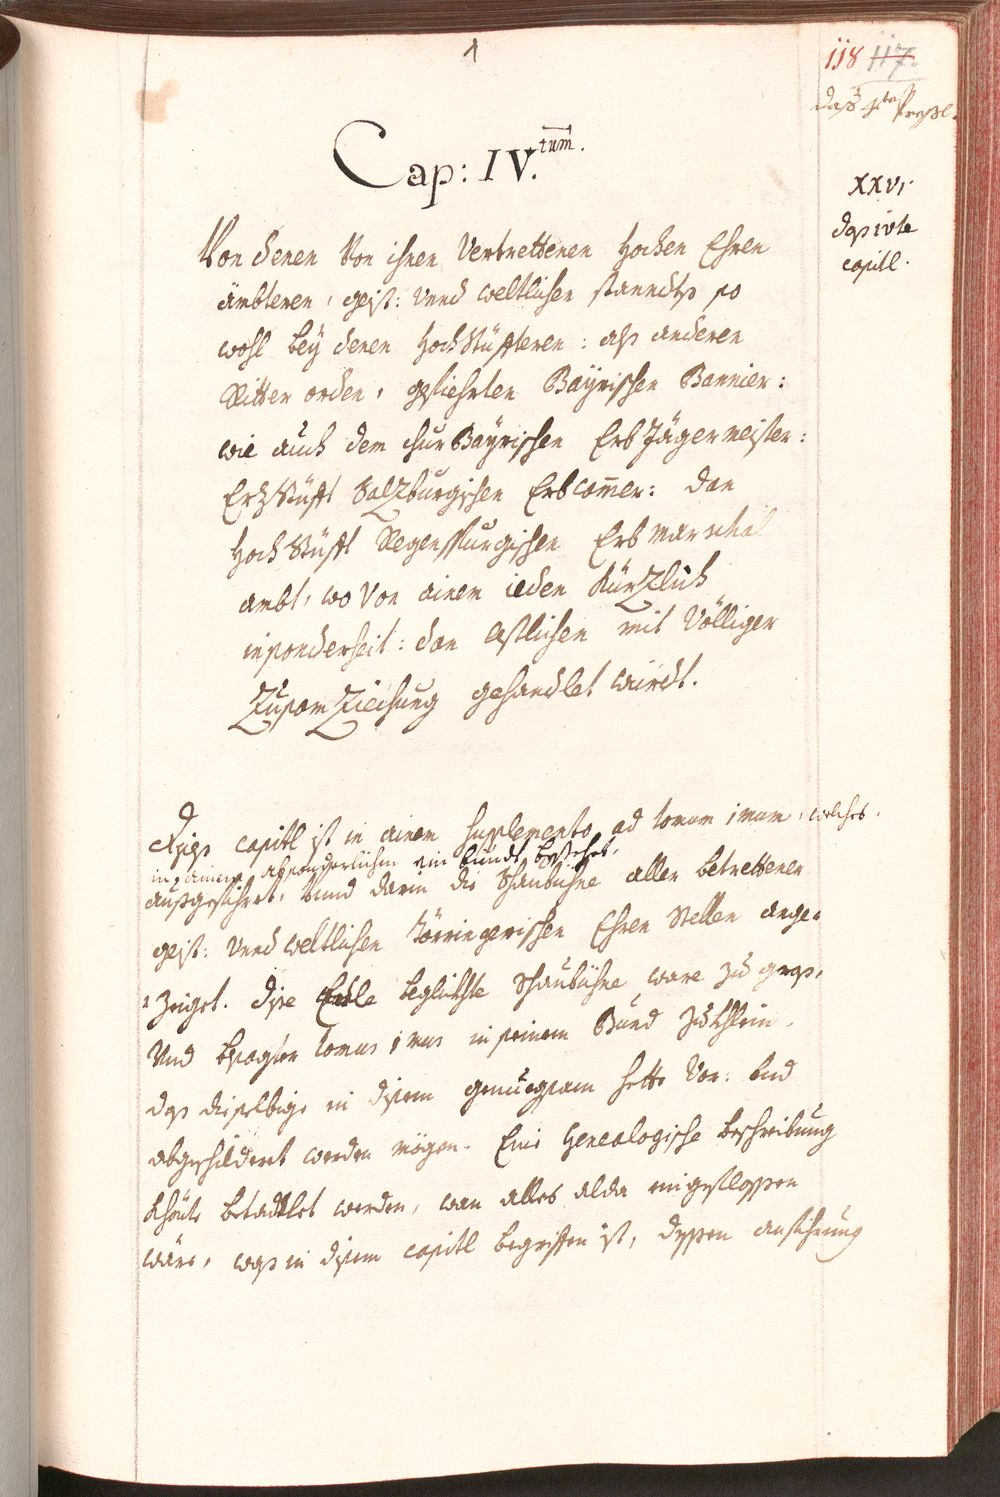 1
118 117.
Cap: IV.tum.
XXVI
das ivte
capitl.
Von denen Von ihnen Vertrettenen hochen Ehren
ämbteren, geist: Vnnd weltlichen standtß so
wohl beÿ denen HochStüffteren: alß anderen
Ritter orden, gefiehrten Baÿrischen Bannier:
wie auch dem churBaÿrischen ErbJägermeister:
ErtzStüfft Saltzburgischen Erbcammer: dan
HochStüfft Regenspurgischen Erbmarschal
ambt, wo Von ainem ieden Kürtzlich
insonderheit: dan lestlichen mit Völliger
Zusamziechung gehandlet würdt.
Dises capitl ist in ainem supplemento ad tomum imum, welches
in ainem absonderlichen ein bundt bestehet,
außgefiehret, Vnnd darin die Schaubühne aller betrettenen
geist: Vnnd weltlichen Törringerischen Ehren Stellen ange-
zeiget. dise beglickhte Schaubühne ware zu gros,
Vnd besagter tomus imus in seinem Bund zu Khlein,
das dieselbige in disem genuegsam hette Vor: Vnd
abgeschildert werden mögen. Eine Genealogische beschreibung
Khönte betadlet werden, wan alles alda eingeflossen
wäre, was in disem capitl begriffen ist, dessen anfiehrung